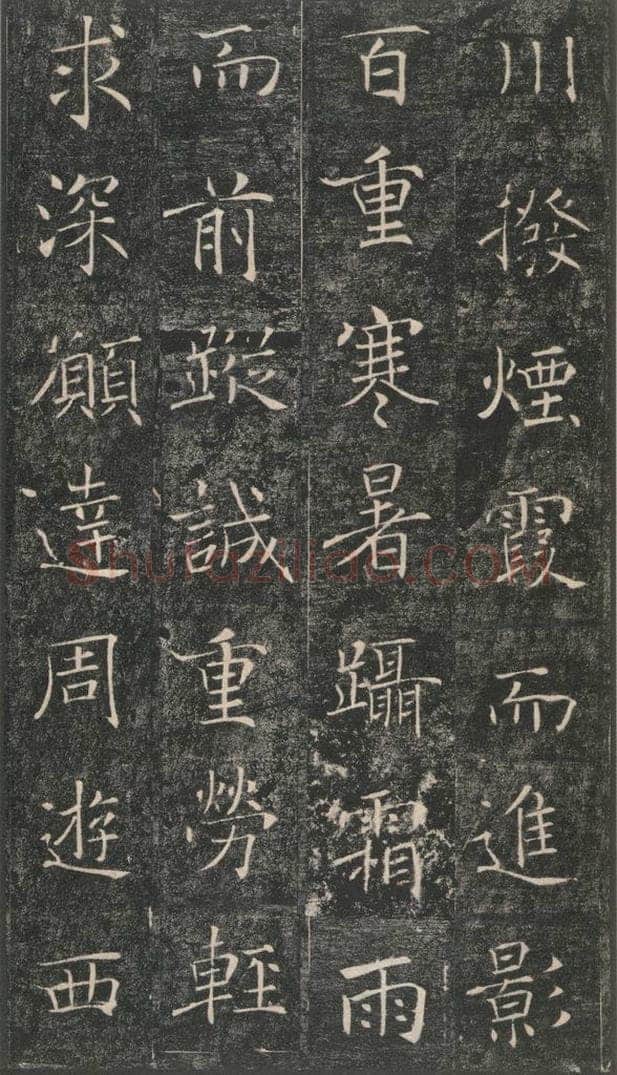 川撥煙霞而進影
百重寒暑躡霜雨
而前蹤誠重勞輕
求深願達周遊西
Shufaziliao.COM